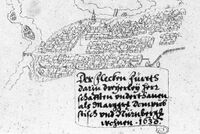 Der flecken fuerts
darin dreyerley herr
schafften underthanen
als Margg. Domprob
stisch und Nürnbergi
wohnen · 1630 ·